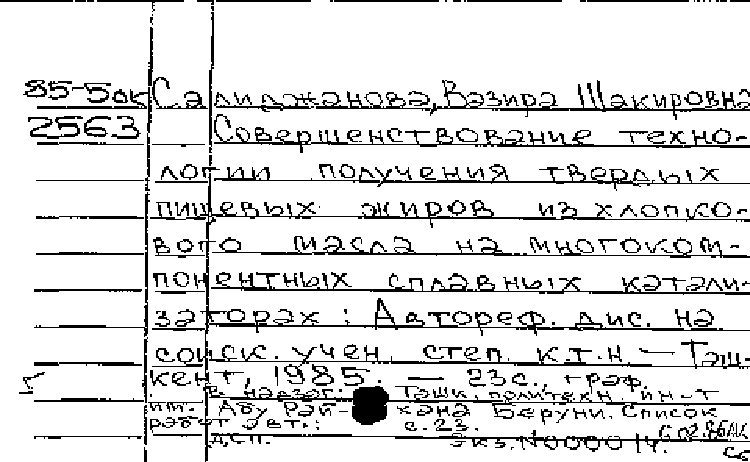 85-5ок Салиджанова, Вазира Шакировна
2563 Совершенствование техно-
логии получения твердых
пищевых жиров из хлопко-
вого масла на многоком-
понентных сплавных катали-
заторах : Автореф. дис. на
соиск. учен. степ. к.т.н. — Таш-
кент, 1985. — 23 с., граф.
В надзаг.: Ташк. политехн. ин-т
им. Абу Рай-хана Беруни. Список
работ авт.: с. 23.
ДСП. Экз. N 000014.